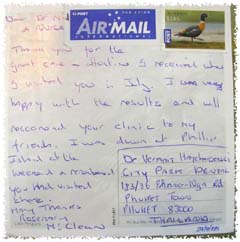 AUSTRALIA
U.POST PAR AVION
AIR MAIL
INTERNATIONAL
Thank you for the
great care + dealing I received when
I visited you in July. I was very
happy with the results and will
reccomend your clinic to my
friends. I was down at Phillip
Island at the
weekend & remembered
you had visited
there.
Many Thanks
Rosemary
McClean
Dr Vernon
City Park Dental
183/36 Phang-Nga Rd
Phuket Town
Phuket 83000
Thailand